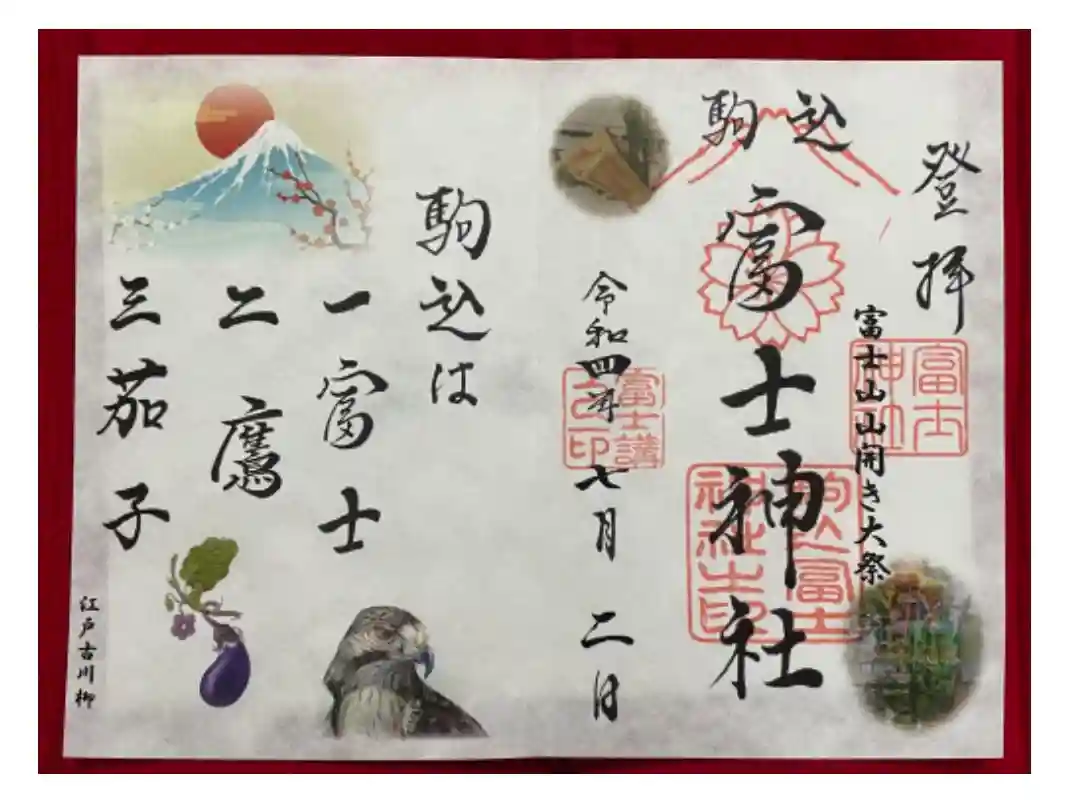 登拝
富士山山開き大祭
富士神社
駒込
富士神社
駒込富士神社之印
令和四年七月二日
富士講
之印
駒込は
一富士
二鷹
三茄子
江戸古川柳